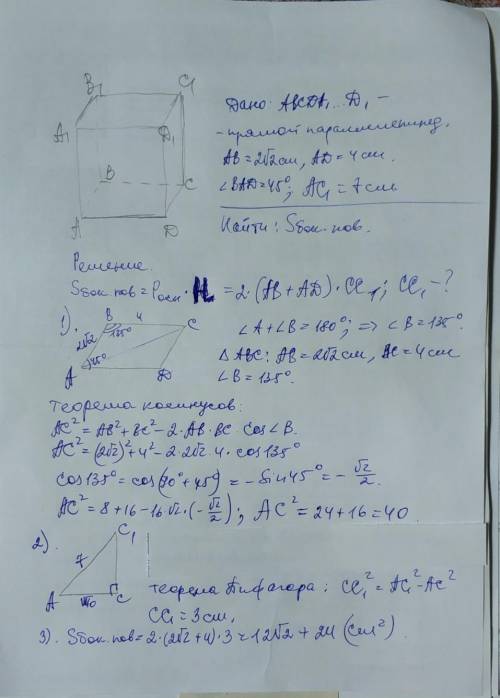 B₁ C₁
A₁ D₁
B C
A D
Дано: ABCDA₁...D₁ –
– прямой параллелепипед.
AB = 2√2 см, AD = 4 см.
∠BAD = 45°; AC₁ = 7 см
Найти: Sбок.пов.
Решение.
Sбок.пов = Pосн · H = 2·(AB+AD)·CC₁; CC₁ – ?
1).
B 4 C
2√2 135°
45°
A D
∠A+∠B = 180°; => ∠B = 135°.
△ABC: AB = 2√2 см, AC = 4 см
∠B = 135°.
теорема косинусов:
AC² = AB² + BC² – 2·AB·BC cos∠B.
AC² = (2√2)² + 4² – 2·2√2·4·cos135°
cos135° = cos(90°+45°) = –sin45° = –√2/2.
AC² = 8+16–16√2·(–√2/2); AC² = 24+16 = 40.
2).
C₁
7
A √40 C
теорема Пифагора: CC₁² = AC₁² – AC²
CC₁ = 3 см.
3). Sбок.пов = 2·(2√2+4)·3 = 12√2 + 24 (см²).